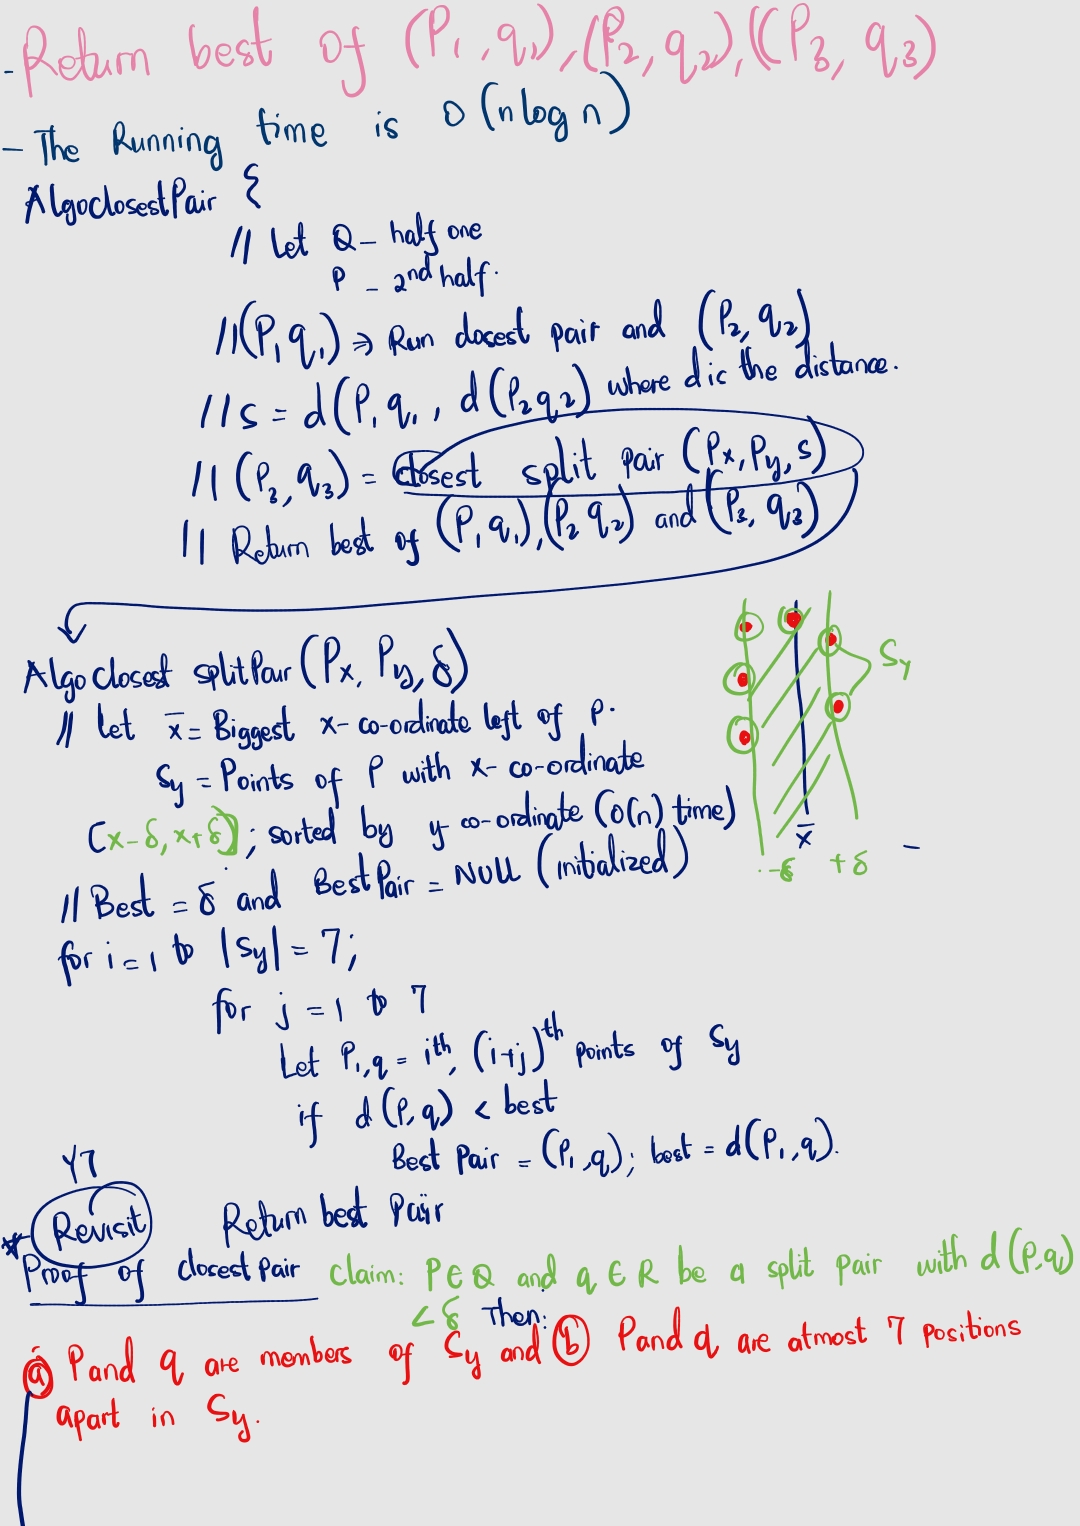 - Return best of (P₁, q₁), (P₂, q₂), ((P₃, q₃)
- The Running time is O(n log n)
AlgoclosestPair {
// Let Q - half one
P - 2nd half.
//(P, q₁) → Run closest pair and (P₂, q₂)
// s = d(P, q₁, d(P₂ q₂) where d is the distance.
// (P₃, q₃) = closest split pair (Px, Py, s)
// Return best of (P, q₁), (P₂ q₂) and (P₃, q₃)
Algo closest split Pair (Px, Py, δ)
// let x̄ = Biggest x-co-ordinate left of P.
Sy = Points of P with x-co-ordinate
[x-δ, x+δ]; sorted by y co-ordinate (O(n) time)
// Best = δ and Best Pair = NULL (initialized)
Sy
x̄
-δ +δ -
for i = 1 to |Sy| = 7;
for j = 1 to 7
Let P₁, q = ith, (i+j)th points of Sy
if d(P, q) < best
Best Pair = (P₁, q); best = d(P₁, q).
Y7
* Revisit Return best Pair
Proof of closest pair claim: P ∈ Q and q ∈ R be a split pair with d(P, q)
< δ Then:
(a) P and q are members of Sy and (b) P and q are atmost 7 positions
apart in Sy.